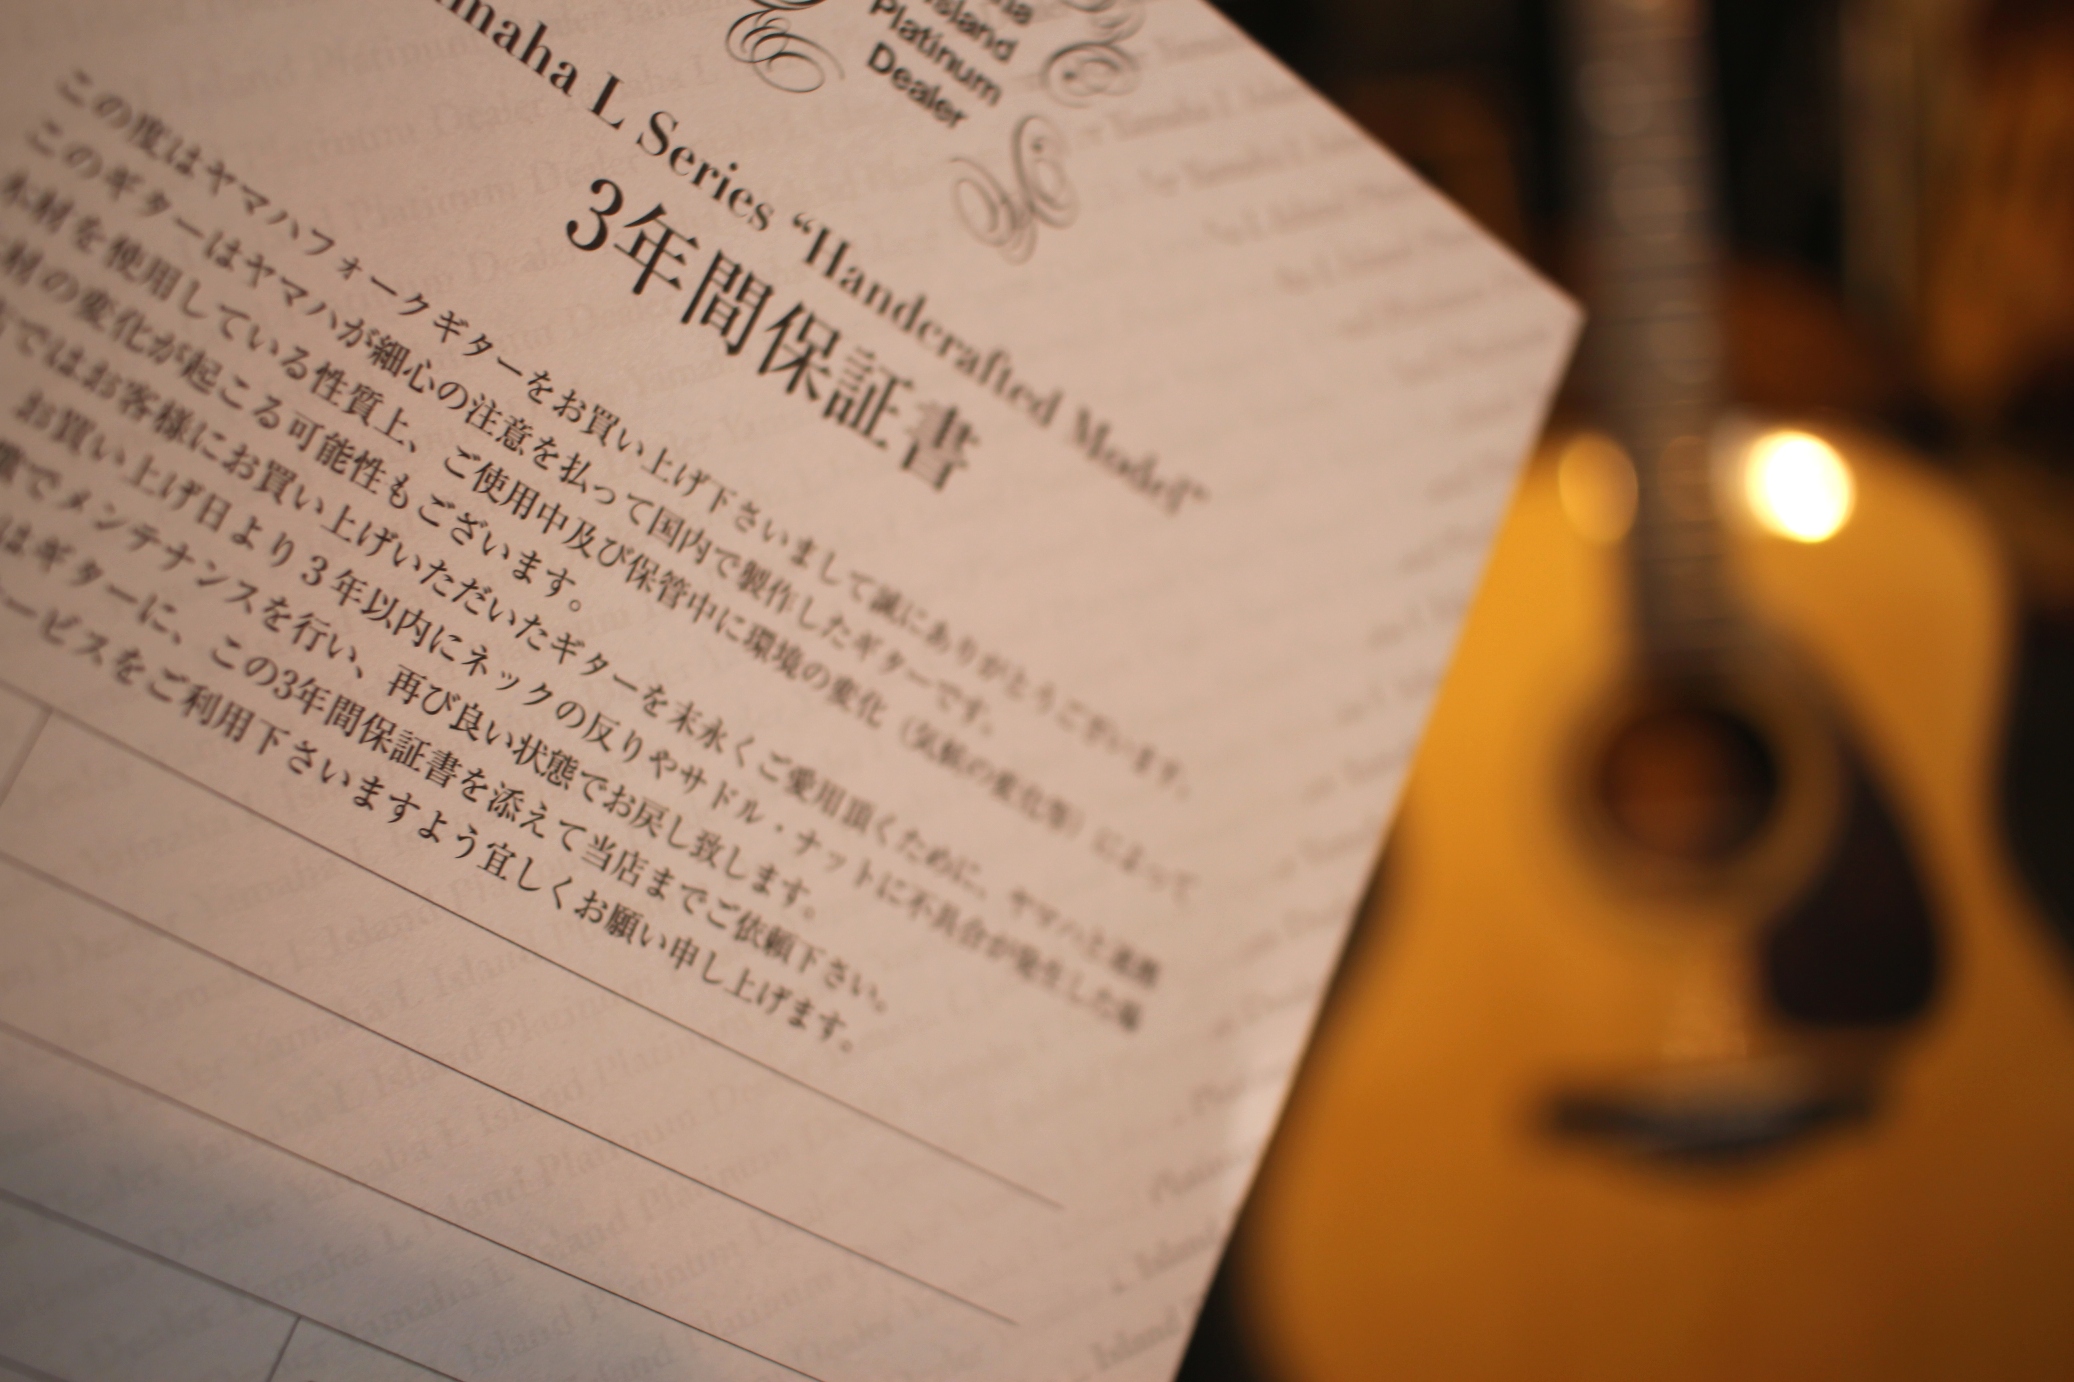 Island
Platinum
Dealer
maha L Series “Handcrafted Model”
3年間保証書
この度はヤマハフォークギターをお買い上げ下さいまして誠にありがとうございます。
このギターはヤマハが細心の注意を払って国内で製作したギターです。
木材を使用している性質上、ご使用中及び保管中に環境の変化（気候の変化等）によって
材の変化が起こる可能性もございます。
ではお客様にお買い上げいただいたギターを末永くご愛用頂くために、ヤマハと連携
お買い上げ日より3年以内にネックの反りやサドル・ナットに不具合が発生した場
でメンテナンスを行い、再び良い状態でお戻し致します。
はギターに、この3年間保証書を添えて当店までご依頼下さい。
ービスをご利用下さいますよう宜しくお願い申し上げます。